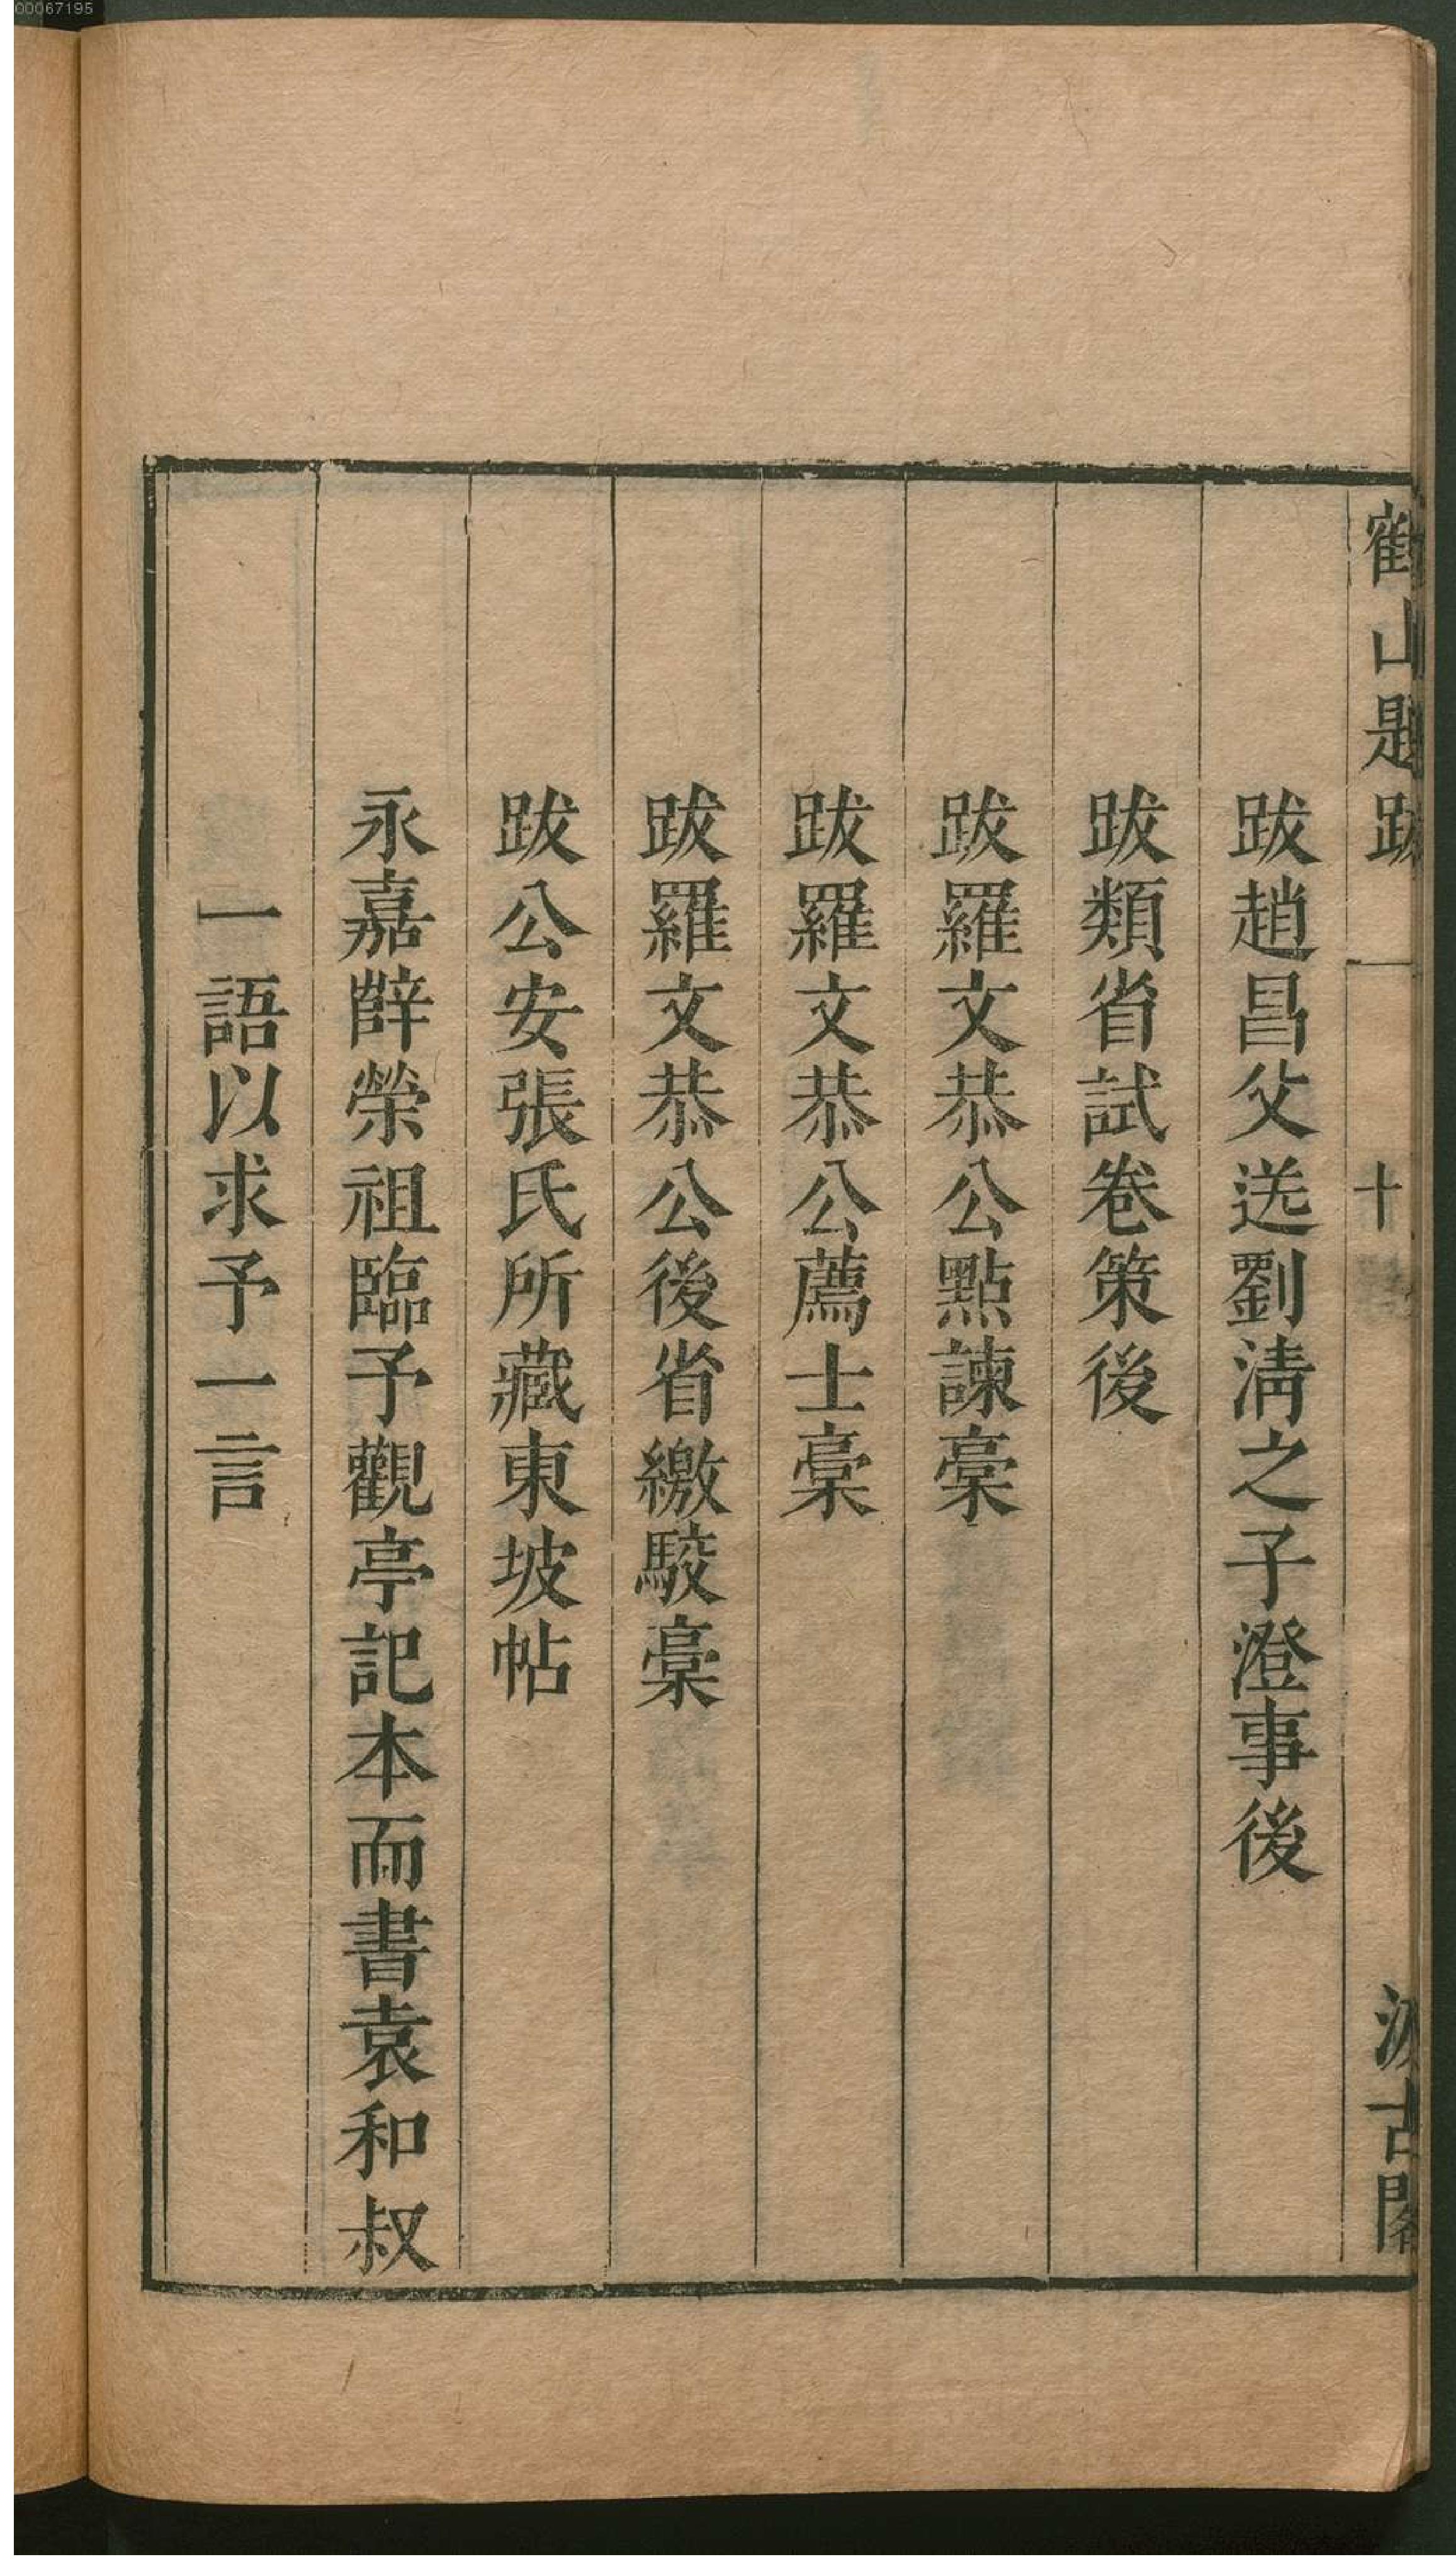 00067195
鶴山題跋
十
汲古閣
跋趙昌父送劉清之子澄事後
跋類省試卷策後
跋羅文恭公點諫稾
跋羅文恭公薦士稾
跋羅文恭公後省繳駮稾
跋公安張氏所藏東坡帖
永嘉薛榮祖臨予觀亭記本而書袁和叔
一語以求予一言